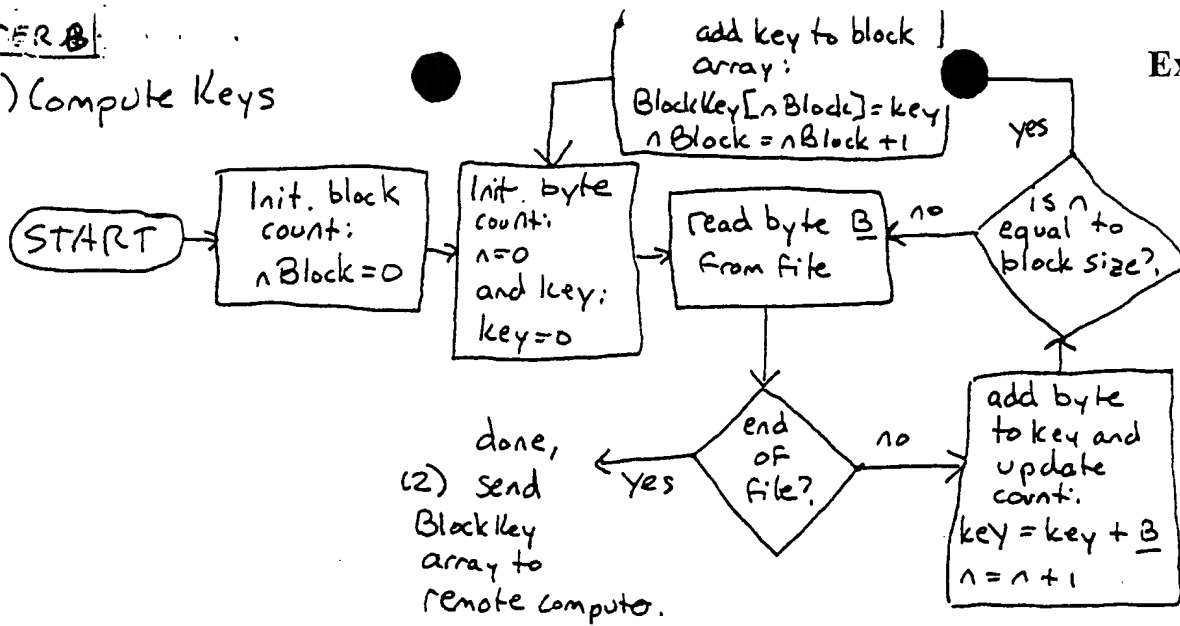 TER B
) Compute Keys
Ex
START
Init. block
count:
nBlock=0
Init. byte
count:
n=0
and key:
key=0
add key to block
array:
BlockKey[nBlock]=key
nBlock=nBlock+1
read byte B
from file
no
is n
equal to
block size?
yes
end
of
file?
no
add byte
to key and
update
count:
key = key + B
n = n + 1
yes
done,
(2) send
BlockKey
array to
remote computer.